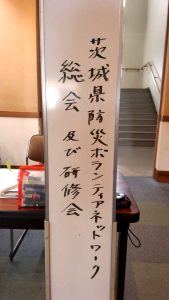 茨城県防災ボランティアネットワーク
総会及び研修会